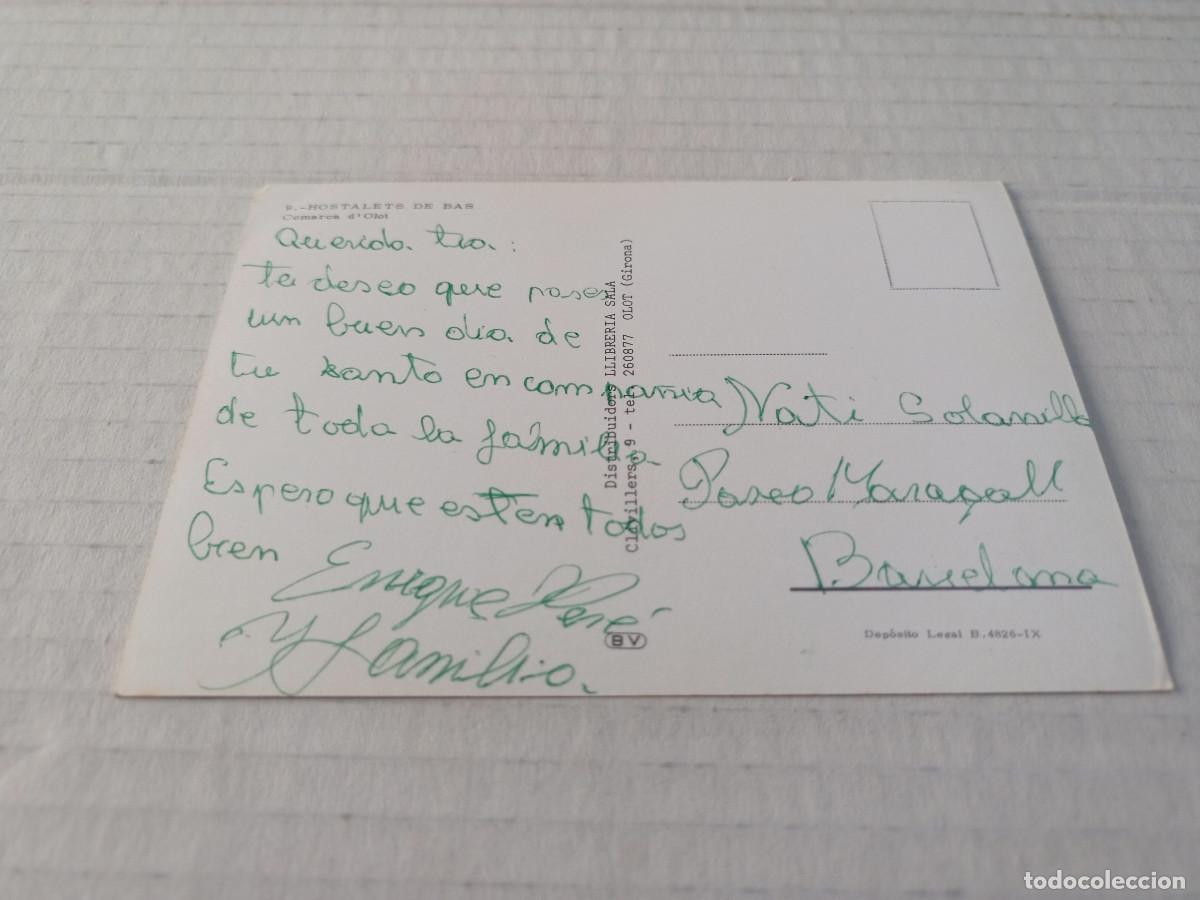 9.-HOSTALETS DE BAS
Comarca d'Olot
Querida tia:
te deseo que pases
un buen dia de
tu santo en compañia
de toda la familia
Espero que esten todos
bien
Enrique
y familia.
Distribuidors LLIBRERIA SALA
Clavillers, 9 - tel. 260877 OLOT (Girona)
BV
Nati Solanilla
Paseo Maragall
Barcelona
Depósito Legal B.4826-IX
todocoleccion